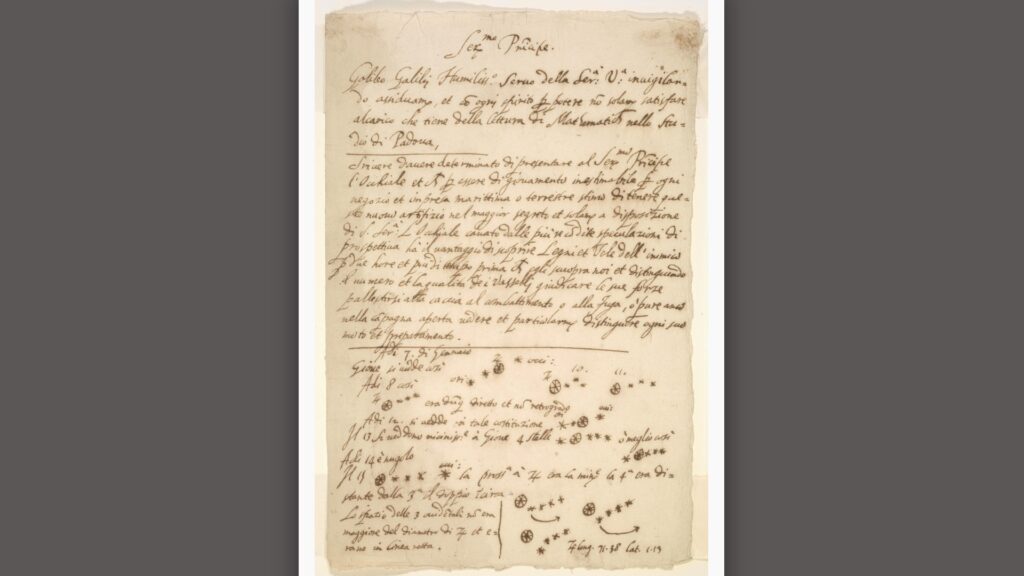 Ser.mo Principe.
Galileo Galilej Humiliss.o Servo della Ser.a V.a invigilan-
do assiduam.e, et cō ogni spirito p potere nō solam.e satisfare
al carico che tiene della lettura di Matematich nello Stu-
dio di Padova,
Scrivere d'avere determinato di presentare al Ser.mo Pricipe
l'Occhiale et p essere di giovamento inestimabile p ogni
negozio et impresa marittima o terrestre stimo di tenere que-
sto nuovo artifizio nel maggior segreto et solam.e a disposizione
di S. Ser.a L'Occhiale cavato dalle più recōdite speculazioni di
prospettiva hà il vantaggio di scoprire Legni et Vele dell'inimico
p due hore et più di tempo prima ch egli scuopra noi et distinguendo
il numero et la qualità de i Vasselli giudicare le sue forze
pallestirsi alla caccia al combattimento o alla fuga, ò pure anco
nella cāpagna aperta vedere et particolarm.e distinguere ogni suo
moto et preparamento.
Adi 7. di Gennaio
Giove si vedde così ♃ occi:
Adi 8 così ori ♃ 10. 11.
♃ era dūq diretto et nō retrogrado
Adi 12. si vedde in tale costituzione occi
Il 13 si veddono vicinis.e à Giove 4 stelle ò meglio così
Adi 14 è nugolo
Il 15 occi: la pross.a à ♃ era la min.e la 4.a era di-
stante dalla 3.a il doppio
Lo spazio delle 3 occidētali nō era
maggiore del diametro di ♃ et e-
rano in linea retta.
♃ long. 71.38 lat. 1.13